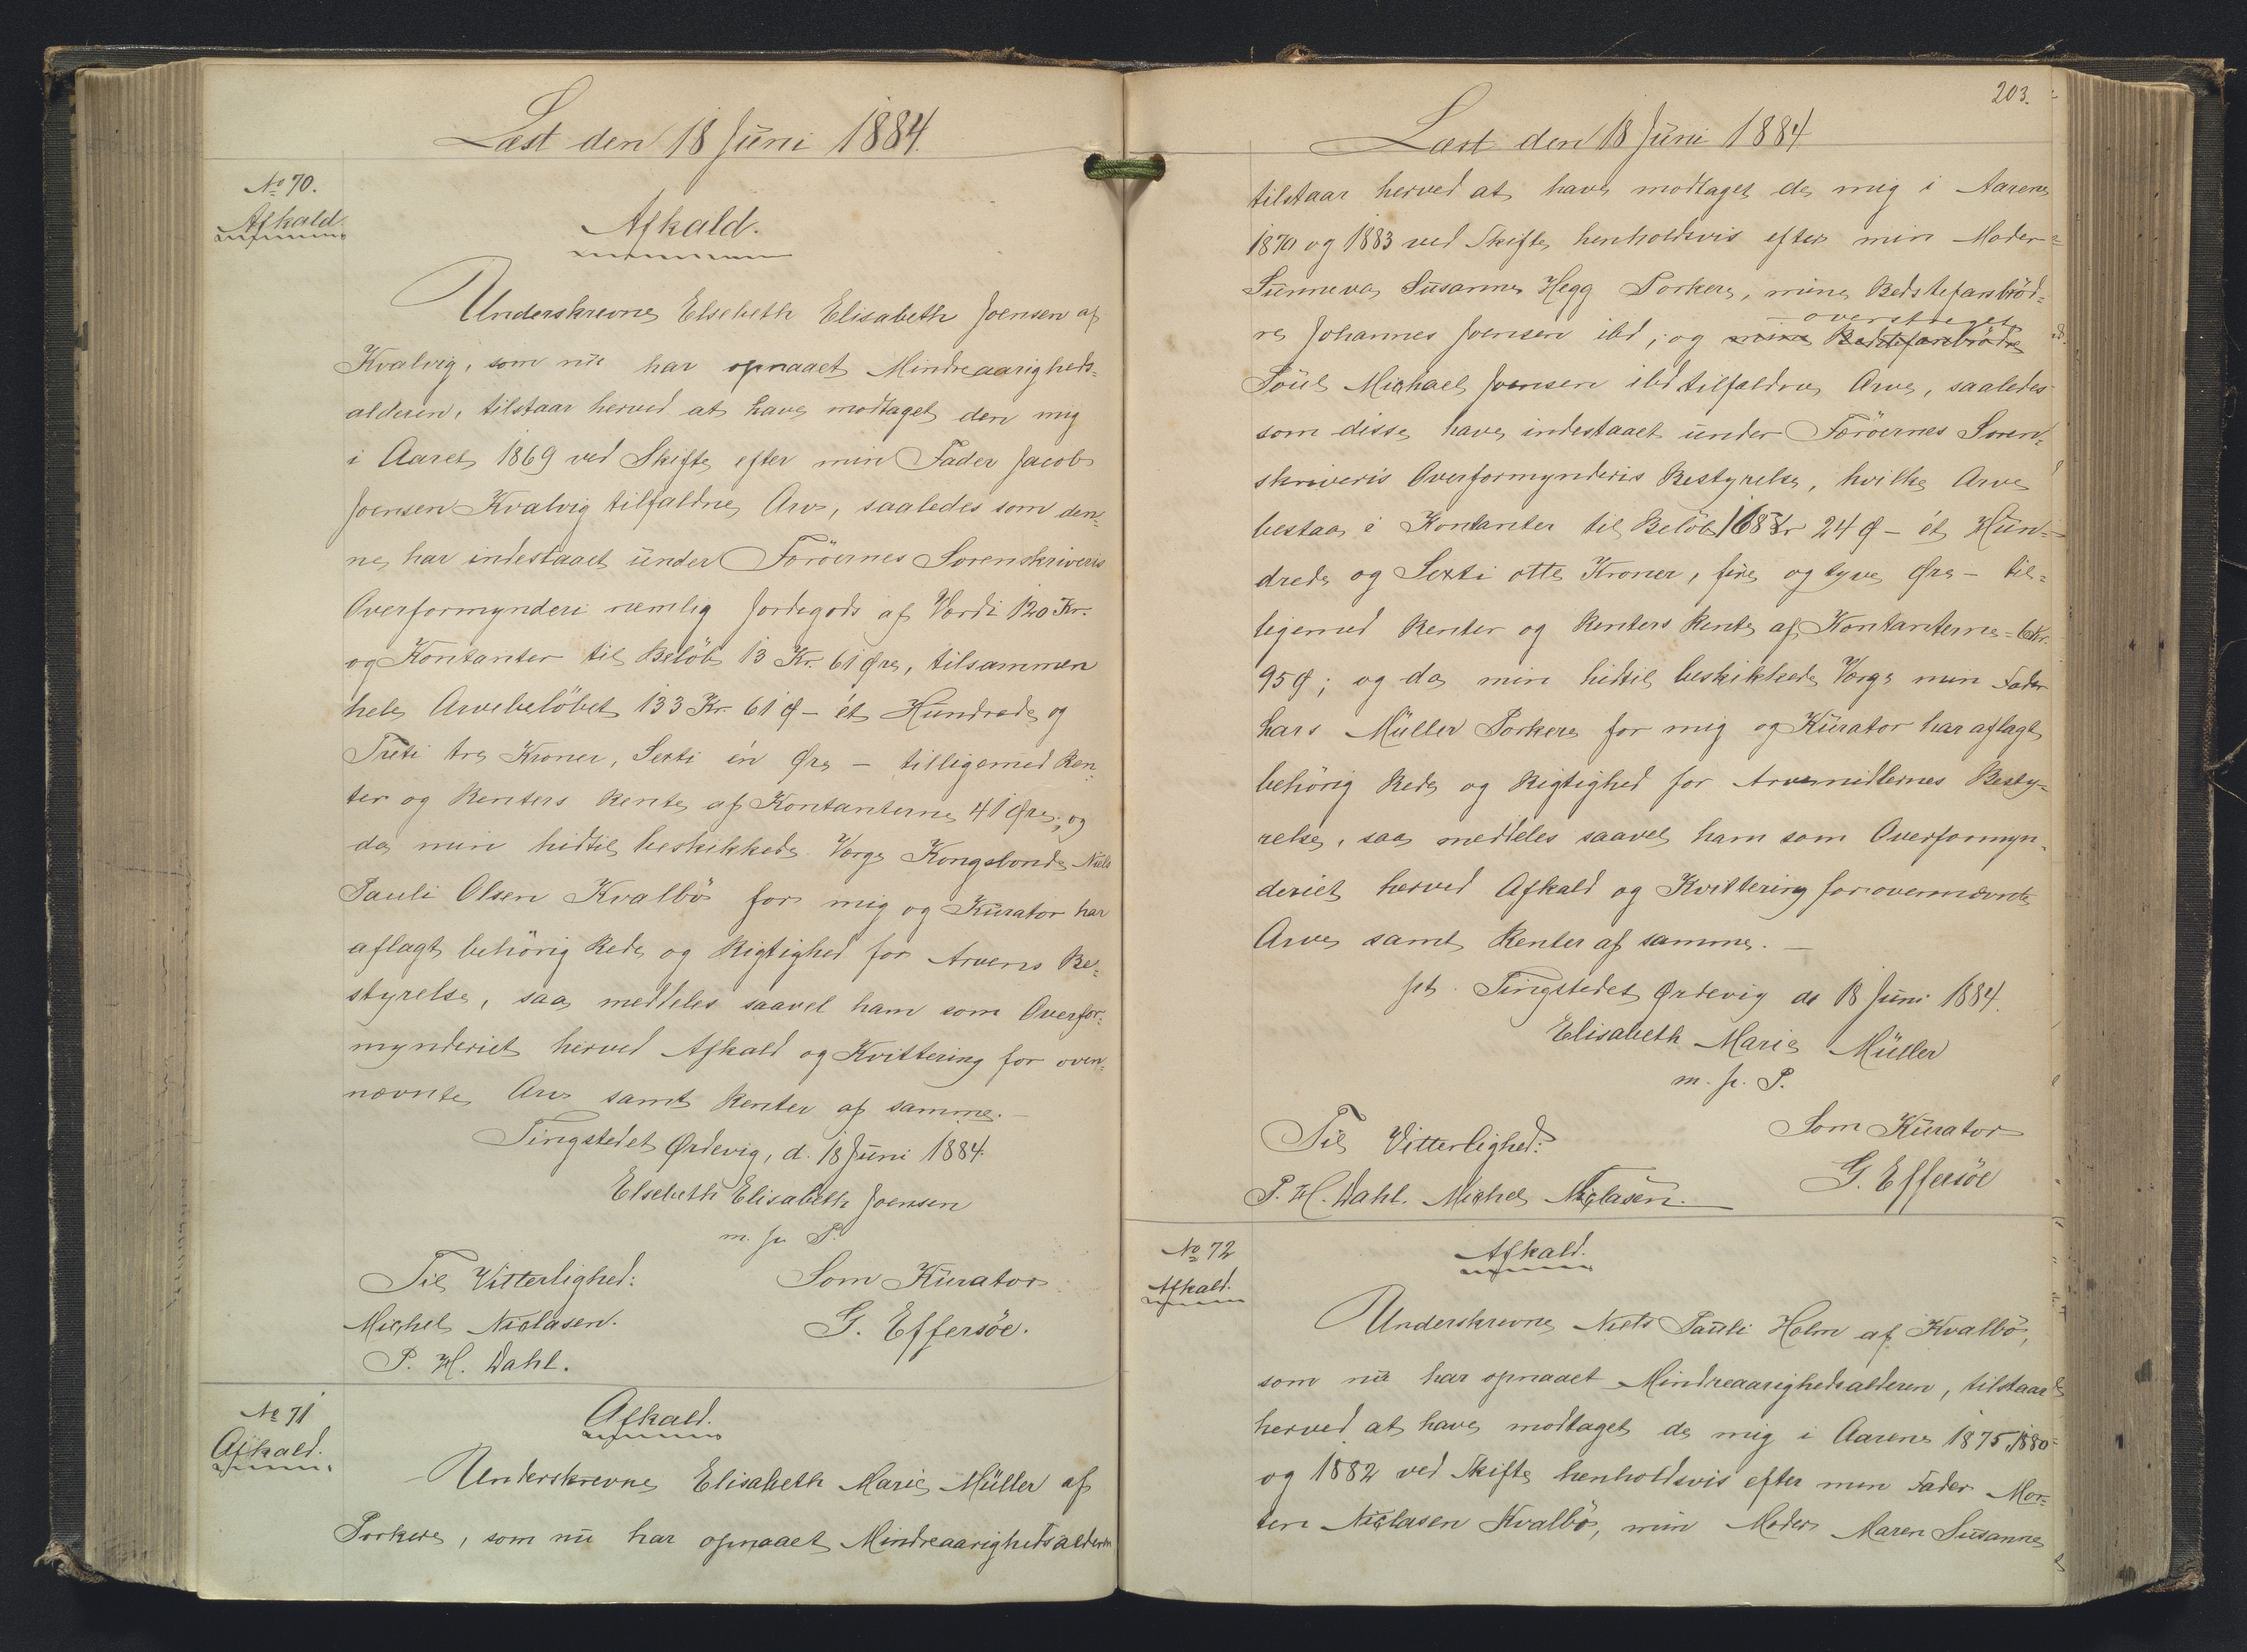 Læst den 18 Juni 1884.
No 70.
Afkald
Afkald.
Underskrevne Elsebeth Elisabeth Joensen af
Kvalvig, som nu har opnaaet Mindreaarigheds=
alderen, tilstaar herved at have modtaget den mig
i Aaret 1869 ved Skifte efter min Fader Jacob
Joensen Kvalvig tilfaldne Arv, saaledes som den=
ne har indestaaet under Færöernes Sorenskriveris
Overformynderi nemlig Jordegods af Værdi 120 Kr.
og Kontanter til Belöb 13 Kr. 61 Øre, tilsammen
hele Arvebelöbet 133 Kr. 61 Ø – ét Hundrede og
Treti tre Kroner, Sexti én Øre – tilligemed Ren=
ter og Renters Rente af Kontanterne 41 Øre; og
da min hidtil beskikkede Værge Kongsbonde Niels
Pauli Olsen Kvalbö for mig og Kurator har
aflagt behörig Rede og Rigtighed for Arvens Be=
styrelse, saa meddeles saavel ham som Overfor=
mynderiet herved Afkald og Kvittering for oven=
nævnte Arv samt Renter af samme.–
Tingstedet Ørdevig, d. 18 Juni 1884.
Elsebeth Elisabeth Joensen
m. f. P.
Til Vitterlighed:
Som Kurator
Michel Niclasen.
G. Effersöe.
P. H. Dahl.
No 71
Afkald.
Afkald.
Underskrevne Elisabeth Marie Müller af
Porkere, som nu har opnaaet Mindreaarighedsalderen
203.
Læst den 18 Juni 1884
tilstaar herved at have modtaget de mig i Aarene
1870 og 1883 ved Skifte henholdsvis efter min Moder
Sunneva Susanne Hegg Porkere, mine Bedstefarsbröd=
overstreget
re Johannes Joensen ibd; og mine Bedstefarsbrödre
Poul Michael Joensen ibd tilfaldne Arve, saaledes
som disse have indestaaet under Færöernes Soren=
skriveris Overformynderis Bestyrelse, hvilke Arve
bestaa i Kontanter til Belöb 168 Kr 24 Ø – ét Hun=
drede og Sexti otte Kroner, fire og tyve Øre – til=
ligemed Renter og Renters Rente af Kontanterne = 6 Kr.
95 Ø; og da min hidtil beskikkede Værge min Fader
Hans Müller Porkere for mig og Kurator har aflagt
behörig Rede og Rigtighed for Arvemidlernes Besty=
relse, saa meddeles saavel ham som Overformyn=
deriet herved Afkald og Kvittering for ovennævnte
Arve samt Renter af samme. –
pt. Tingstedet Ørdevig de 18 Juni 1884.
Elisabeth Marie Müller
m. f. P.
Til Vitterlighed:
Som Kurator
P. H. Dahl. Michel Niclasen.
G. Effersöe
No 72
Afkald.
Afkald.
Underskrevne Niels Pauli Holm af Kvalbö,
som nu har opnaaet Mindreaarighedsalderen, tilstaar
herved at have modtaget de mig i Aarene 1875, 1880
og 1882 ved Skifte henholdsvis efter min Fader Mor=
ten Niclasen Kvalbö, min Moder Maren Susanne